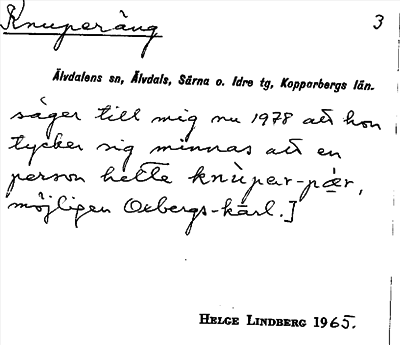 Knuperäng
3
Älvdalens sn, Älvdals, Särna o. Idre tg, Kopparbergs län.
säger till mig nu 1978 att hon
tycker sig minnas att en
person hette knùper-pær,
möjligen Oxbergs-kārl.]
HELGE LINDBERG 1965.